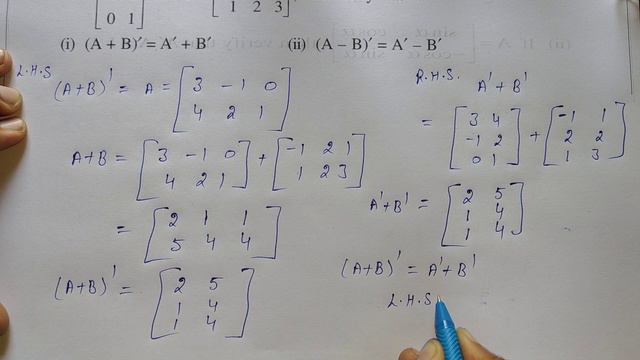 0 1
1 2 3
(i) (A + B)′ = A′ + B′ (ii) (A – B)′ = A′ – B′
L.H.S
(A+B)' = A = [3 -1 0
4 2 1]
A+B = [3 -1 0
4 2 1] + [-1 2 1
1 2 3]
= [2 1 1
5 4 4]
(A+B)' = [2 5
1 4
1 4]
R.H.S. A' + B'
= [3 4
-1 2
0 1] + [-1 1
2 2
1 3]
A'+B' = [2 5
1 4
1 4]
(A+B)' = A'+B'
L.H.S